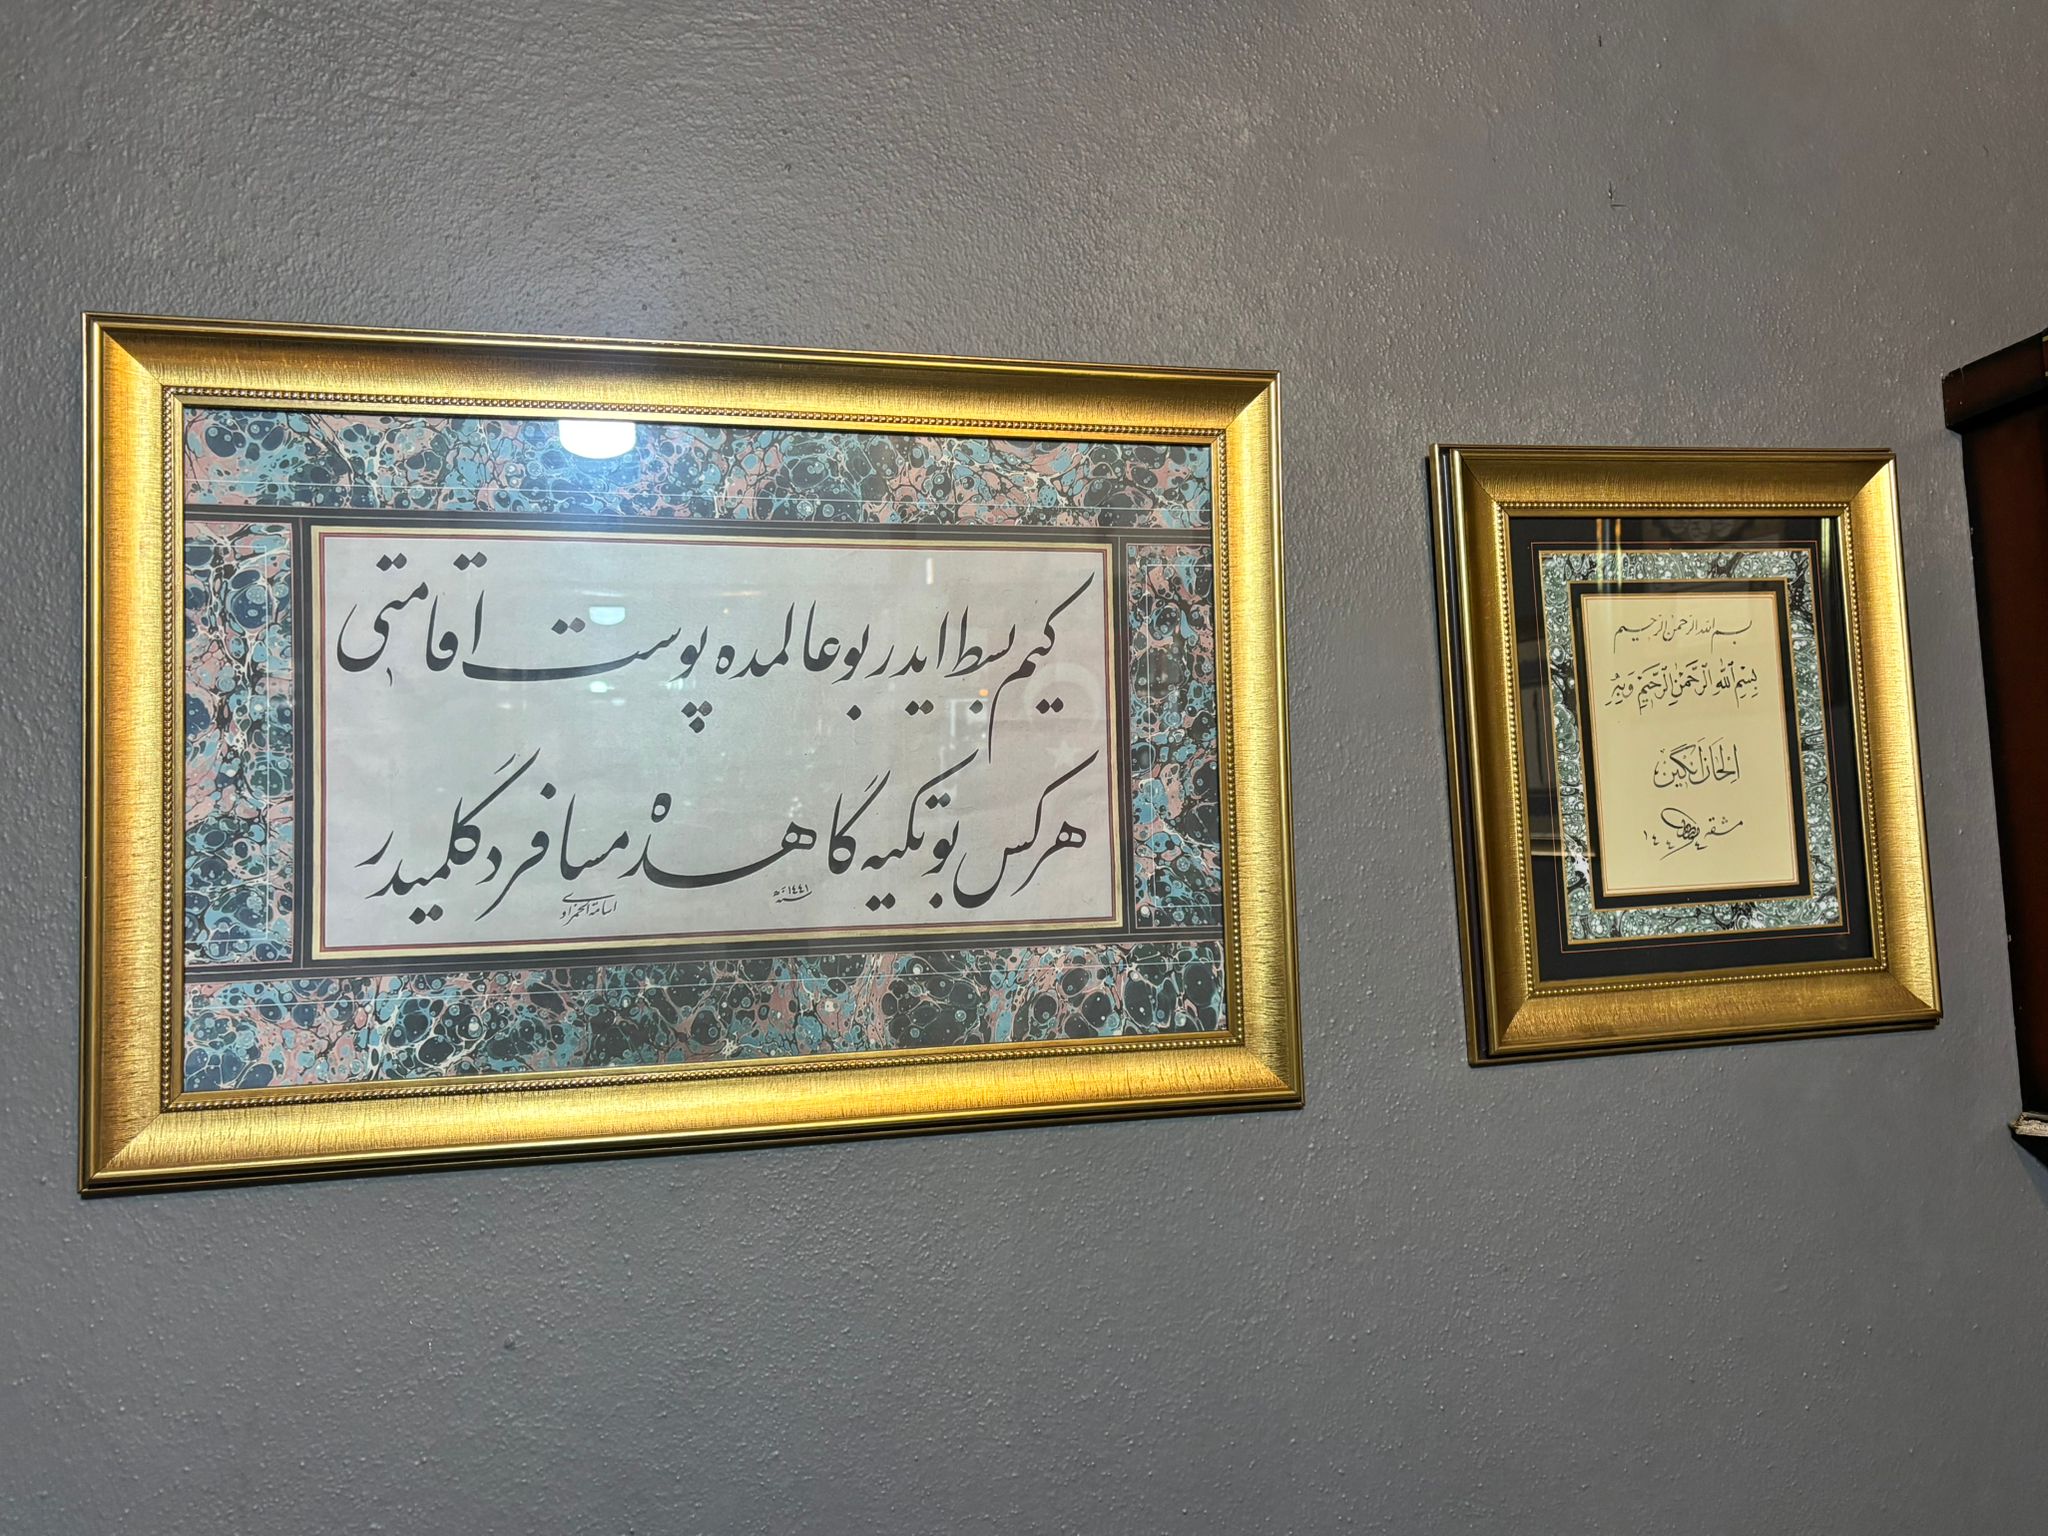 كیم بسط ایدر بو عالمده پوست اقامتی
هركس بو تكیه گاهده مسافر دگلمیدر
سنه ١٤٤١هـ
اسامة الحمزاوي
بسم الله الرحمن الرحيم
بِسْمِ ٱللَّهِ ٱلرَّحْمَٰنِ ٱلرَّحِيمِ وَبِهِ
مشقه
١٤٤٤